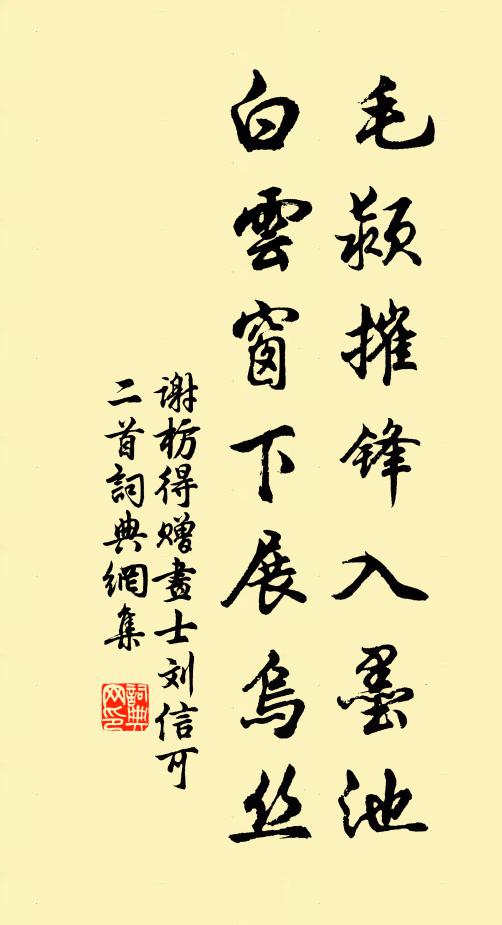 毛颖摧锋入墨池
白雲窗下展烏丝
谢枋得赠畫士刘信可
二首詞典網集
詞典网印